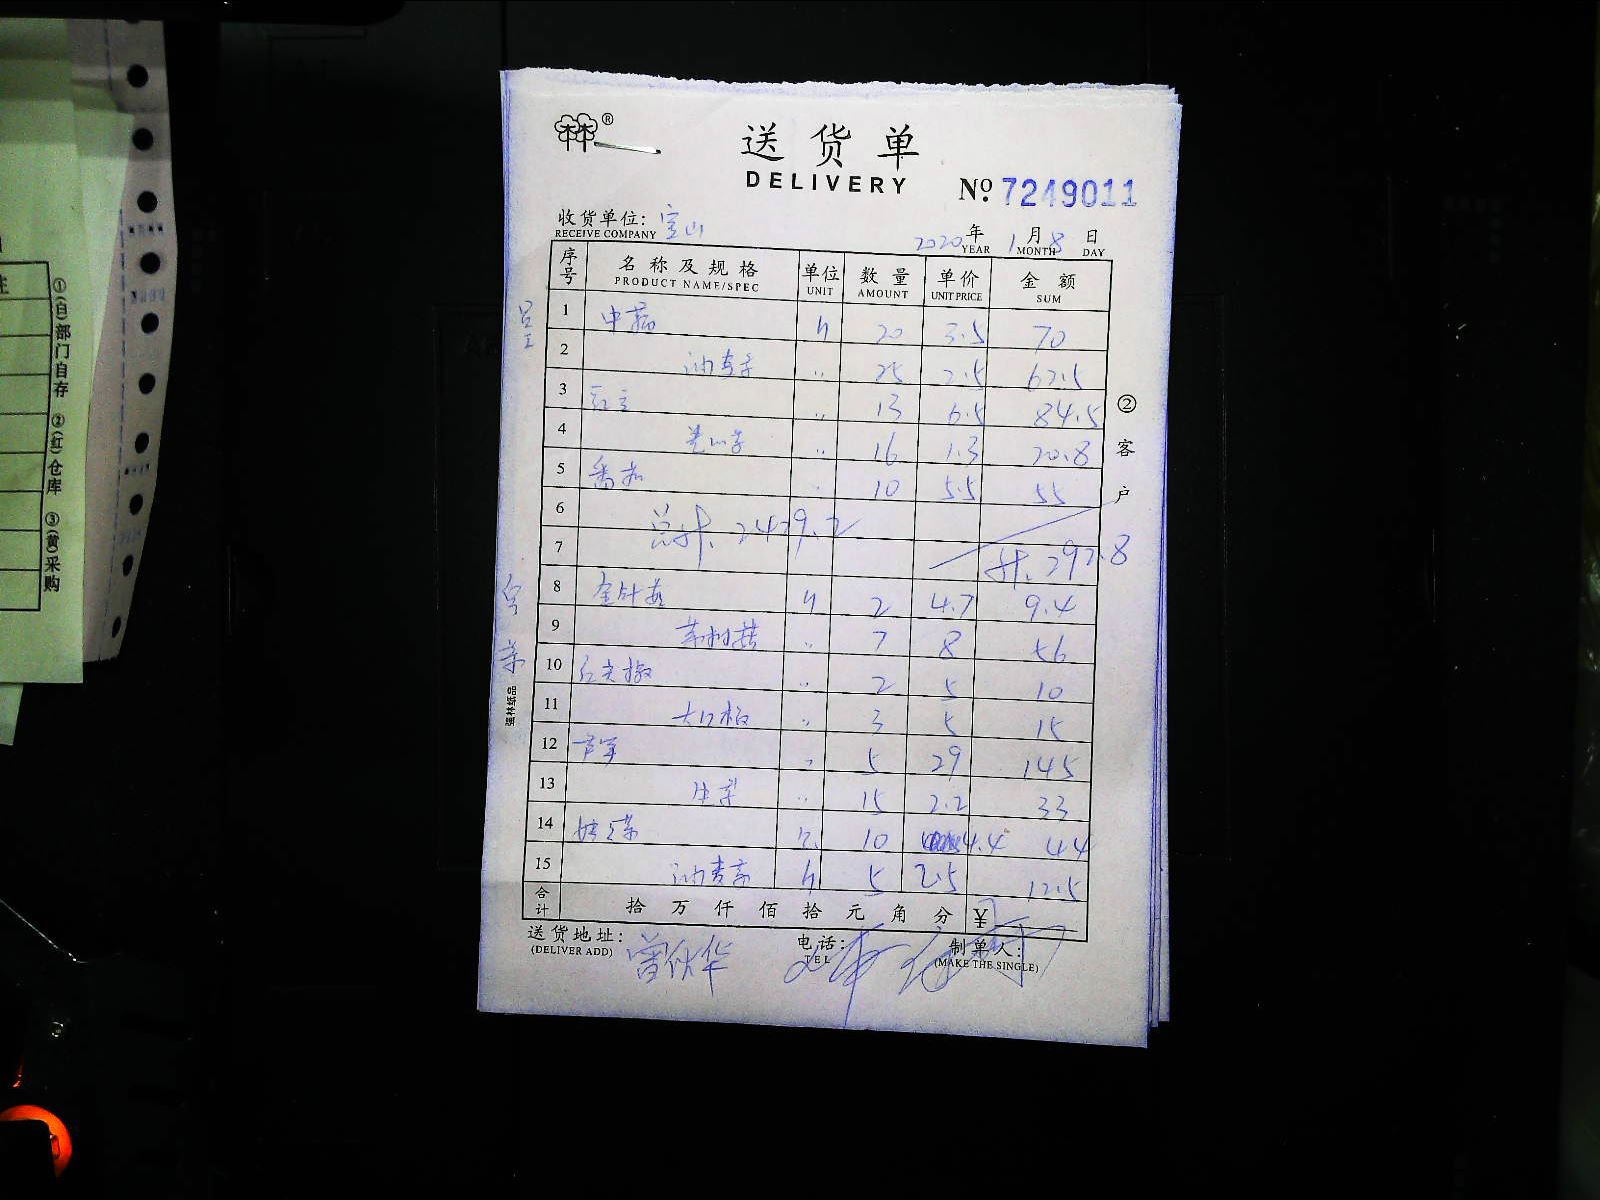 ®
送货单
DELIVERY
№ 7249011
收货单位: 宝山
RECEIVE COMPANY
2020年 1月 8日
YEAR MONTH DAY
序号 名称及规格 单位 数量 单价 金额
PRODUCT NAME/SPEC UNIT AMOUNT UNIT PRICE SUM
1 中菇 斤 20 3.5 70
2 油麦菜 〃 25 2.5 62.5
3 〃 13 6.5 84.5
4 〃 16 1.3 20.8
5 番茄 〃 10 5.5 55
6 总计. 2429.2
7 计. 292.8
8 金针菇 斤 2 4.7 9.4
9 茶树菇 〃 7 8 56
10 红尖椒 〃 2 5 10
11 〃 3 5 15
12 芦笋 〃 5 29 145
13 生菜 〃 15 2.2 33
14 10 4.4 44
15 油麦菜 斤 5 2.5 12.5
合计 拾 万 仟 佰 拾 元 角 分 ¥
送货地址: 电话: 制单人:
(DELIVER ADD) TEL (MAKE THE SINGLE)
②客户
强林纸品
①(白)部门自存 ②(红)仓库 ③(黄)采购